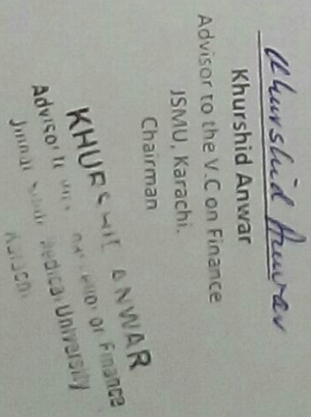 Khurshid Anwar
Khurshid Anwar
Advisor to the V.C on Finance
JSMU, Karachi.
Chairman
KHURSHID ANWAR
Advisor to Vice Chancellor on Finance
Jinnah Sindh Medical University
Karachi